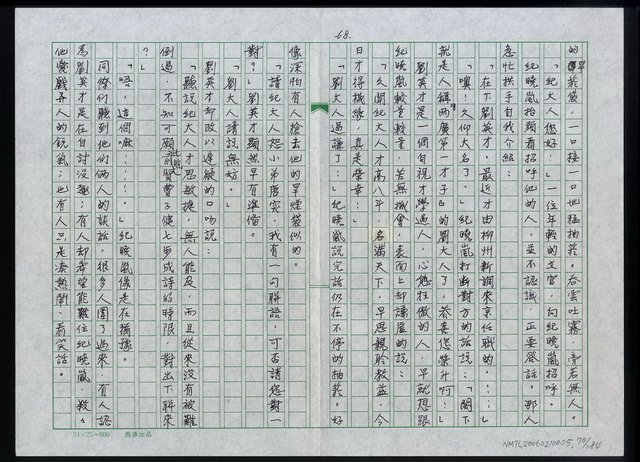 68.
的旱菸袋，一口接一口地猛抽菸，吞雲吐霧，旁若無人。
「紀大人您好！」一位年輕的文官，向紀曉嵐招呼。
紀曉嵐抬頭看招呼他的人，並不認識，正要答話，那人
急忙拱手自我介紹：
「在下劉英才，最近才由柳州新調來京任職的……」
「噢！久仰大名了。」紀曉嵐打斷對方的話說：「閣下
就是人稱『兩廣第一才子』的劉大人了，恭喜您榮升啊！」
劉英才是一個自視才學過人，心態狂傲的人，早就想跟
紀曉嵐較量較量，苦無機會，表面上卻謙虛的說：
「久聞紀大人才高八斗，名滿天下，早思親聆教益，今
日才得機緣，真是榮幸！」
「劉大人過謙了！」紀曉嵐說完話仍在不停的抽菸。好
像深怕有人搶去他的旱煙袋似的。
「請紀大人恕小弟唐突，我有一句聯語，可否請您對一
對？」劉英才顯然早有準備。
「劉大人請說無妨。」
劉英才卻故以遲疑的口吻說：
「聽說紀大人才思敏捷，無人能及，而且從來沒有被難
倒過，不知可願以七步成詩的時限，對出下聯來
？」
「唔，這個嘛……」紀曉嵐倏走在猶豫。
同僚們聽到他們倆人的談話，很多人圍了過來，有人認
為劉英才是在自討沒趣；有人卻希望能難住紀曉嵐，殺
他愛戲弄人的銳氣；也有人只是湊熱鬧、看笑話。
24×25=600 西源出品
NMTL20060210005, 70/184